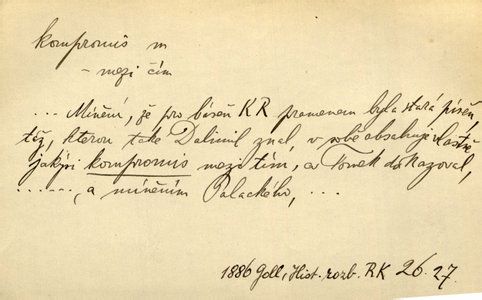 kompromis m
- mezi čím
... Mínění, že pro báseň KR pramenem byla stará píseň,
táž, kterou také Dalimil znal, v sobě obsahuje vlastně
jakýsi kompromis mezi tím, co Tomek dokazoval,
......, a míněním Palackého, ...
1886 Goll, Hist. rozb. RK 26.27.